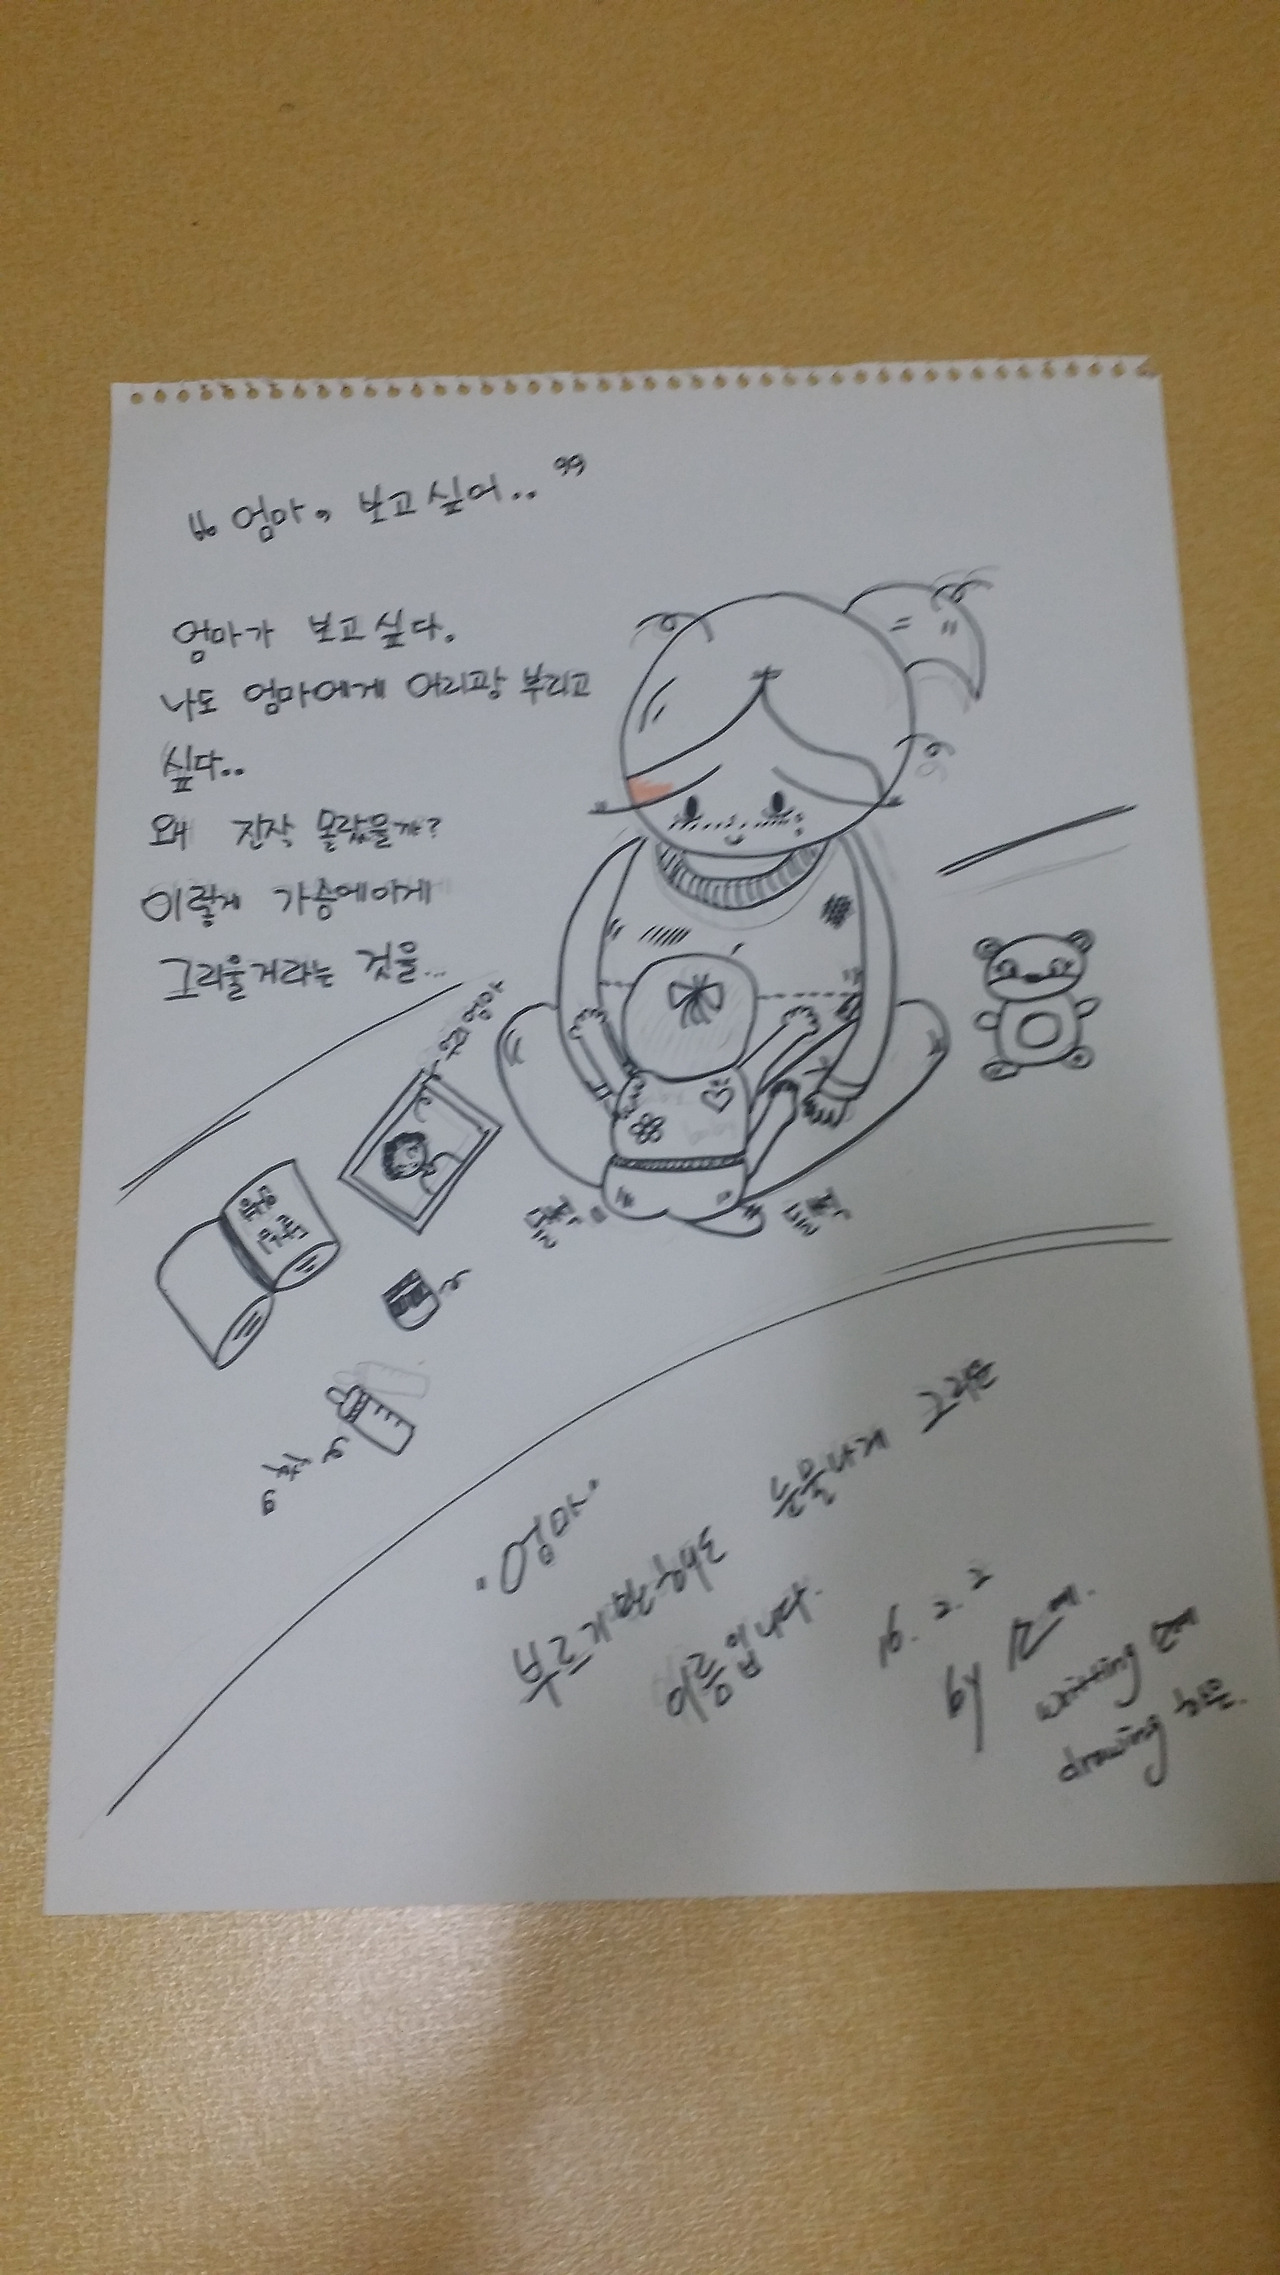 "엄마, 보고싶어.."
엄마가 보고싶다.
나도 엄마에게 어리광 부리고
싶다..
왜 진작 몰랐을까?
이렇게 가슴에이게
그리울거라는 것을...
우리엄마
육아
들썩
들썩
"엄마"
부르기만해도 눈물나게 그리운
이름입니다.
16. 2. 2
by
writting
drawing